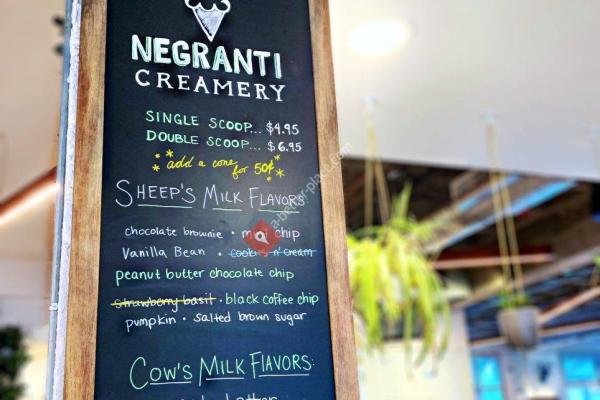 NEGRANTI
CREAMERY
SINGLE SCOOP... $4.95
DOUBLE SCOOP... $6.95
add a cone for 50¢
SHEEP'S MILK FLAVORS:
chocolate brownie • mint chip
Vanilla Bean • cookies n' cream
peanut butter chocolate chip
strawberry basil • black coffee chip
pumpkin • salted brown sugar
COW'S MILK FLAVORS: